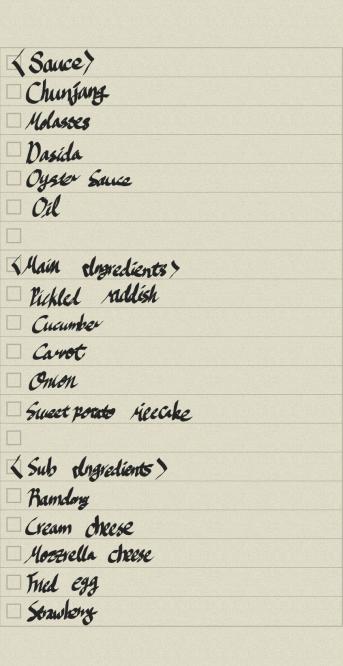 <Sauce>
Chunjang
Molasses
Dasida
Oyster Sauce
Oil
<Main Ingredients>
Pickled raddish
Cucumber
Carrot
Onion
Sweet potato ricecake
<Sub Ingredients>
Ramdong
Cream cheese
Mozzrella cheese
Fried egg
Strawberry